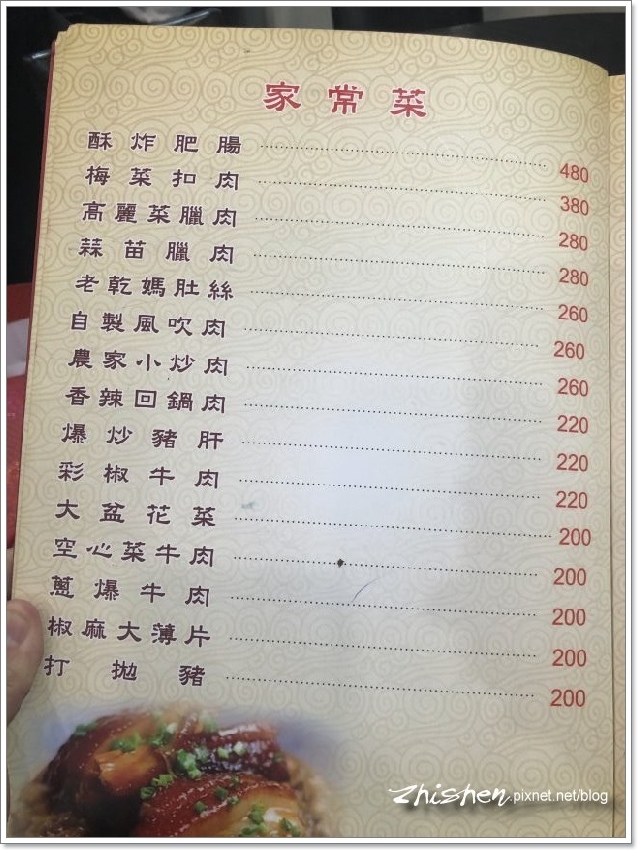 家常菜
酥炸肥腸 480
梅菜扣肉 380
高麗菜臘肉 280
蒜苗臘肉 280
老乾媽肚絲 260
自製風吹肉 260
農家小炒肉 260
香辣回鍋肉 220
爆炒豬肝 220
彩椒牛肉 220
大盆花菜 200
空心菜牛肉 200
蔥爆牛肉 200
椒麻大薄片 200
打拋豬 200
zhishen.pixnet.net/blog